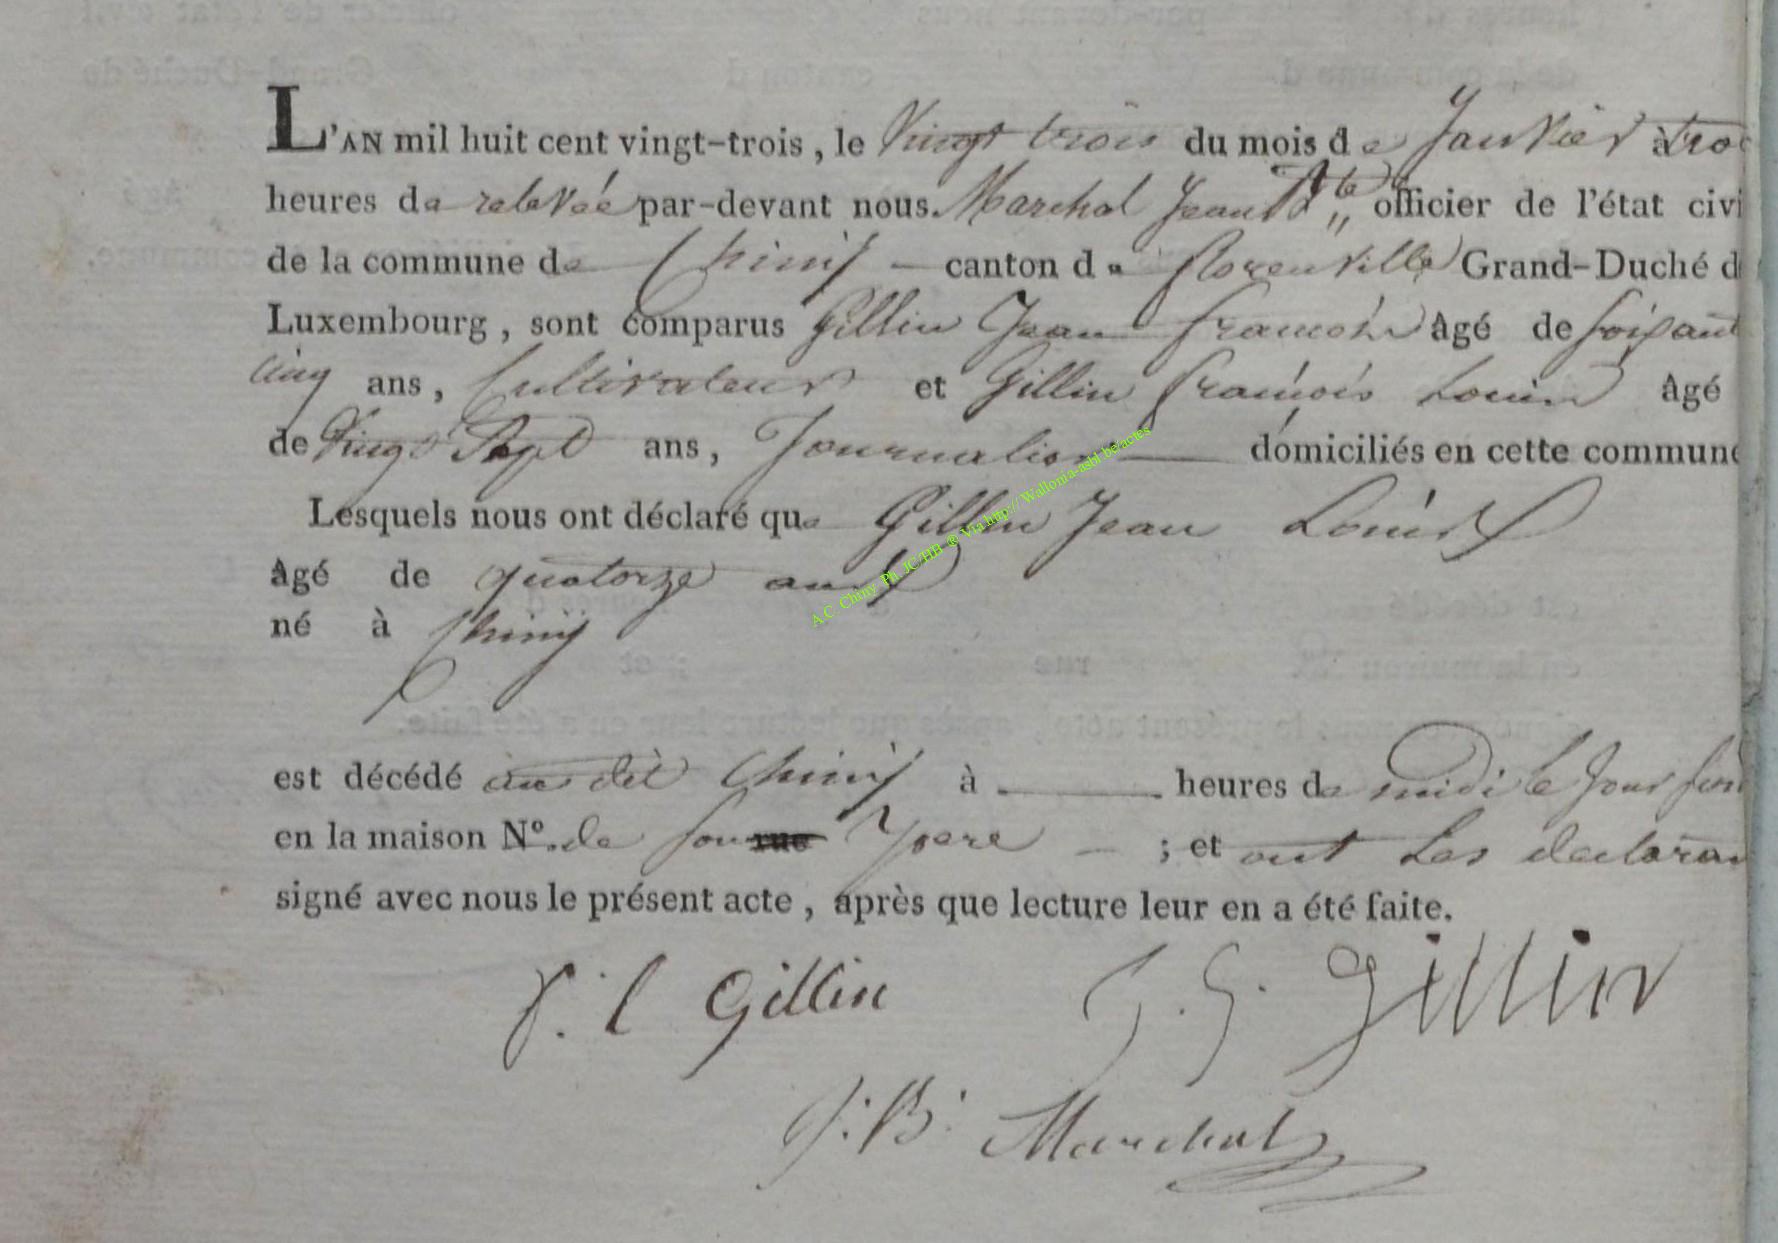 L'AN mil huit cent vingt-trois, le Vingt trois du mois de Janvier à troi
heures de relevée par-devant nous Marchal Jean Bte officier de l'état civi
de la commune de Chiny canton de florenville Grand-Duché d
Luxembourg, sont comparus Gillin Jean françois âgé de soixant
cinq ans, Cultivateur et Gillin françois Louis âgé
de Vingt Sept ans, Journalier domiciliés en cette commune
Lesquels nous ont déclaré que Gillin Jean Louis
âgé de quatorze ans
né à Chiny
est décédé au dit Chiny à heures de midi le Jour
en la maison Nº. de son rue père ; et ont Les declaran
signé avec nous le présent acte, après que lecture leur en a été faite.
f. l Gillin J. f. Gillin
J: B: Marchal
A.C. Chiny Ph. JC/HB ® Via http:// Wallonia-asbl be/actes